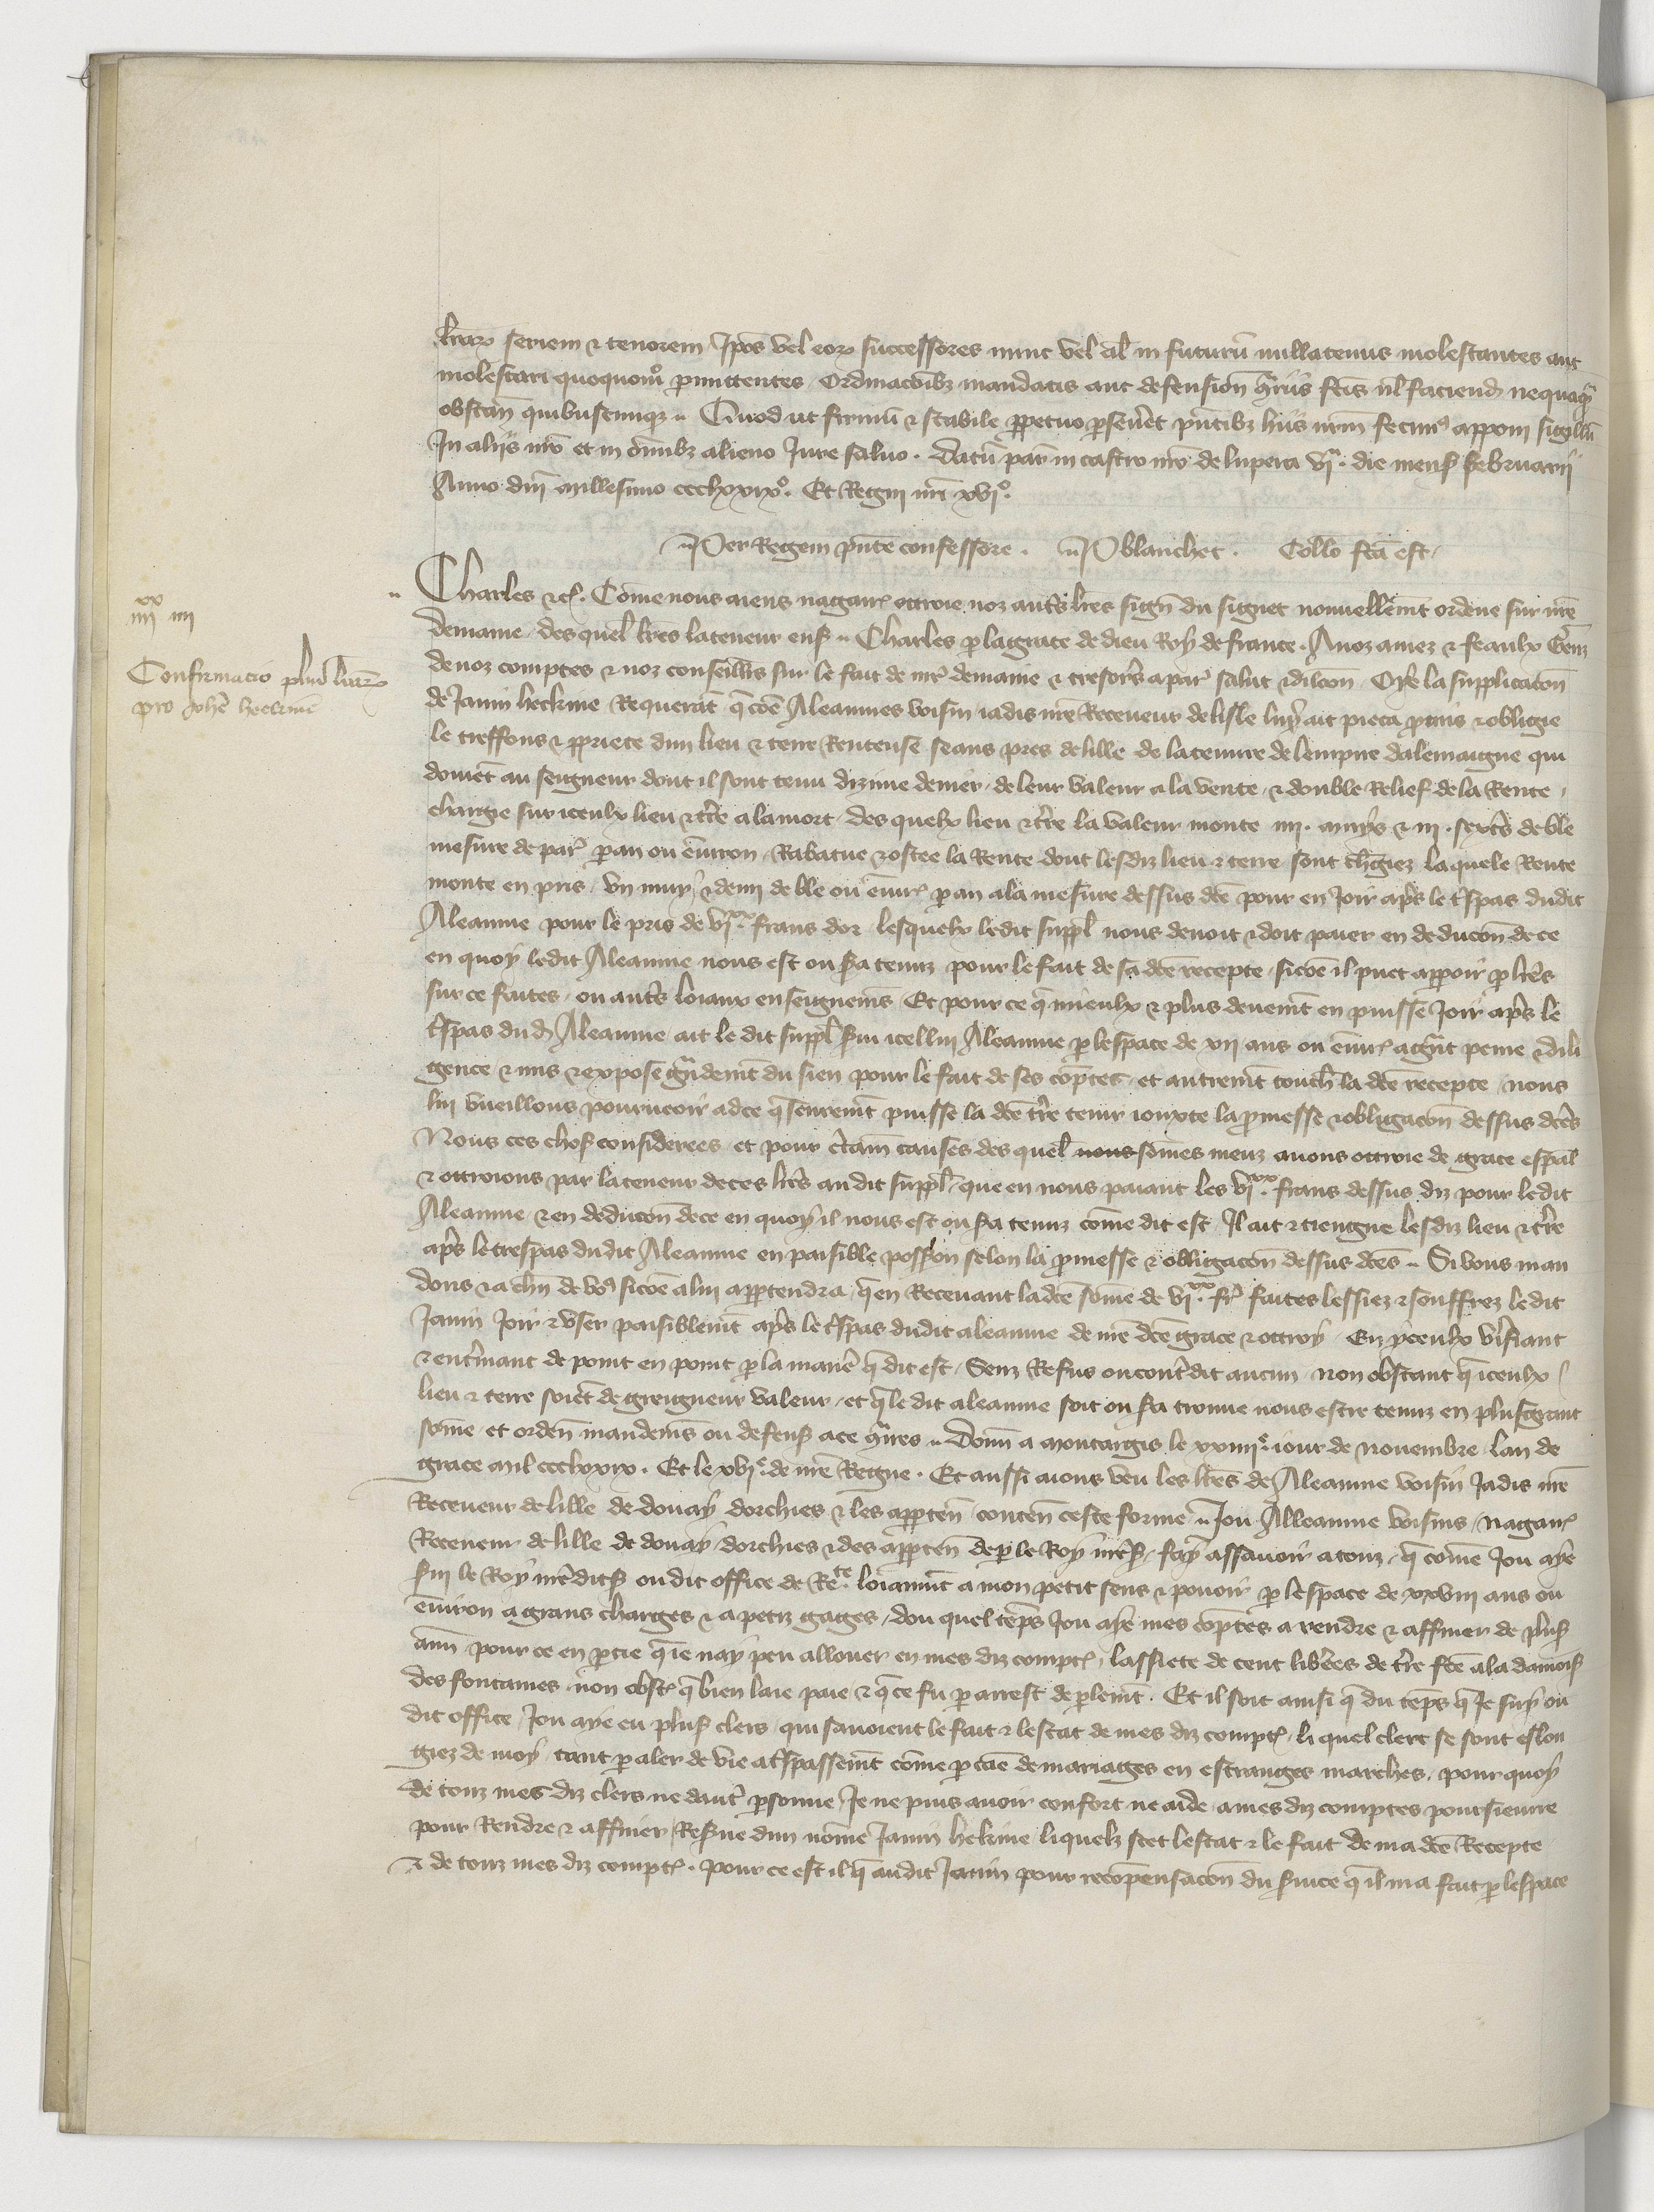 lrarꝝ seriem ⁊ tenorem Ipos vel eorꝝ successores nunc vel al in futurū nullatenus molestantes aut
molestari quoquomo ꝑmittentes / Ordinacoibꝫ mandatis aut defension ꝯriis fcis ul faciend nequaqᵃ
obstan quibuscunqꝫ ~ Quod ut firmū ⁊ stabile ꝑpetuo ꝑseueret pntibꝫ hiis nrm fecimꝰ apponi sigillū
In aliis nro et in omibꝫ alieno Iure saluo . Datū par in castro nro de lupera vjᵃ . die mens februarii
Anno dni millesimo ccclxxixº . Et Regni nri xvjº .
Per Regem pnte confessore . P blanchet . Collo fca est
Charles ⁊c . Come nous aiens nagaires ottroie noz autres lres sign du signet nouuellemt ordene sur nre
demaine / des quel lres la teneur ens ~ Charles ꝑ la grace de dieu Roy de france . A noz amez ⁊ feaulx Genz
de noz comptes ⁊ noz conseillrs sur le fait de nr demaine ⁊ tresorrs a par salut ⁊ dilcon . Oye la supplicacon
de Janin heckine Requerat q coe Aleaumes voisin iadis nre Receueur de lisle luy ait pieca ꝓmis ⁊ obligie
le treffons ⁊ ꝓpriete dun lieu ⁊ terre Renteuse seans pres de lille de la tenure de lempire dalemaigne qui
doiuet au seigneur dont il sont tenu dizime denier de leur valeur a la vente / ⁊ double Relief de la Rente
chargie sur iceulx lieu ⁊ tre a la mort / des quelx lieu ⁊ tre la valeur monte iiij . muys ⁊ iij . sextrs de ble
mesure de par ꝑ an ou enuiron / Rabatue ⁊ ostee la Rente dont lesdiz lieu ⁊ terre sont chgiez laquele Rente
monte en pris / vn muy ⁊ demi de ble ou enuir ꝑ an a la mesure dessus dce pour en Joir aprs le trspas dudit
Aleaume pour le pris de vjˣˣ . frans dor / lesquelx ledit suppl nous deuoit ⁊ doit paier en deducon de ce
en quoy ledit Aleaume nous est ou sra tenuz pour le fait de sa dce recepte / sicoe il puet apꝑoir ꝑ lres
sur ce faites / ou autrs loiaux enseignems / Et pour ce q mieulx ⁊ plus deuemt en puisse Joir aprs le
trspas dud Aleaume ait le dit suppl srui icelluy Aleaume ꝑ lespace de xij ans ou enuir a grat peine ⁊ dili
gence ⁊ mis ⁊ expose grademt du sien pour le fait de ses coptes / et autremt touch la dce recepte / nous
lui vueillons pourueoir ad ce q seuremt puisse la dce tre tenir iouxte la ꝓmesse ⁊ obligacon dessus dces
Nous ces chos considerees / et pour ctain causes des quel nous somes meuz auons ottroie de grace espal
⁊ ottroions par la teneur de ces lres au dit suppl / que en nous paiant les vjˣˣ . frans dessus diz pour ledit
Aleaume / ⁊ en deducon de ce en quoy il nous est ou sra tenuz come dit est / Il ait ⁊ tiengne lesdiz lieu ⁊ tre
aprs le trespas dudit Aleaume en paisible possion selon la ꝓmesse ⁊ obligacon dessus dces ~ Si vous man
dons ⁊ a chn de voꝰ sicoe a lui apꝑtendra / q en Receuant ladce some de vjˣˣ . fr faites lessiez ⁊ souffrez ledit
Janin Joir ⁊ vser paisiblemt aprs le trspas dudit aleaume de nre dce grace ⁊ ottroy / En yceulx vrifiant
⁊ entrinant de point en point ꝑ la manie q dit est / Senz Refus ou contrdit aucun / non obstant q iceulx
lieu ⁊ terre soiet de greigneur valeur / et q le dit aleaume soit ou sra trouue nous estre tenuz en plusgrant
some / et orden mandems ou defens a ce ꝯtires ~ Donn a montargis le xxiiijᵉ . iour de nouembre / lan de
grace mil ccclxxix . Et le xvjᵉ . de nre Regne . Et aussi aions veu les lres de Aleaume voisin Jadis nre
Receueur de lille de douay dorchies ⁊ les apꝑten / conten ceste forme ~ Jou Alleaume voisins / nagair
Receueur de lille de douay / dorchies ⁊ des apꝑten de ꝑ le Roy nres / fay assauoir a touz / q come Jou aye
srui le Roy nre dit s ou dit office de Rete . loiaumt a mon petit sens ⁊ pouoir ꝑ lespace de xxviij ans ou
enuiron a grans charges ⁊ a petiz gages / dou quel teps Jou aye mes coptes a rendre ⁊ affiner de plus
ann / pour ce en ꝑtie q ie nay peu allouer en mes diz compt / lassiete de cent librees de tre fce a la damois
des fontaines non obst q bien laie paie / ⁊ q ce fu ꝑ arrest de ꝑlemt . Et il soit ainsi q du teps q Je suy ou
dit office / Jou aye eu plus clers qui sauoient le fait ⁊ lestat de mes diz compt / li quel clerc se sont eslon
giez de moy / tant ꝑ aler de vie a trspassemt come ꝑ cae de mariages en estranges marches / pour quoy
de touz mes diz clers ne dautr ꝑsonne / Je ne puis auoir confort ne aide a mes diz comptes poursieure
pour Rendre ⁊ affiner / Resrue dun nome Janin hekine liquelz scet lestat ⁊ le fait de ma dce Recepte
⁊ de touz mes diz compt . pour ce est il q au dit Janin pour recopensacon du sruice q il ma fait ꝑ lespace
iiijˣˣ iiij
Confirmacio pluri lrarꝝ
pro Johe heckine